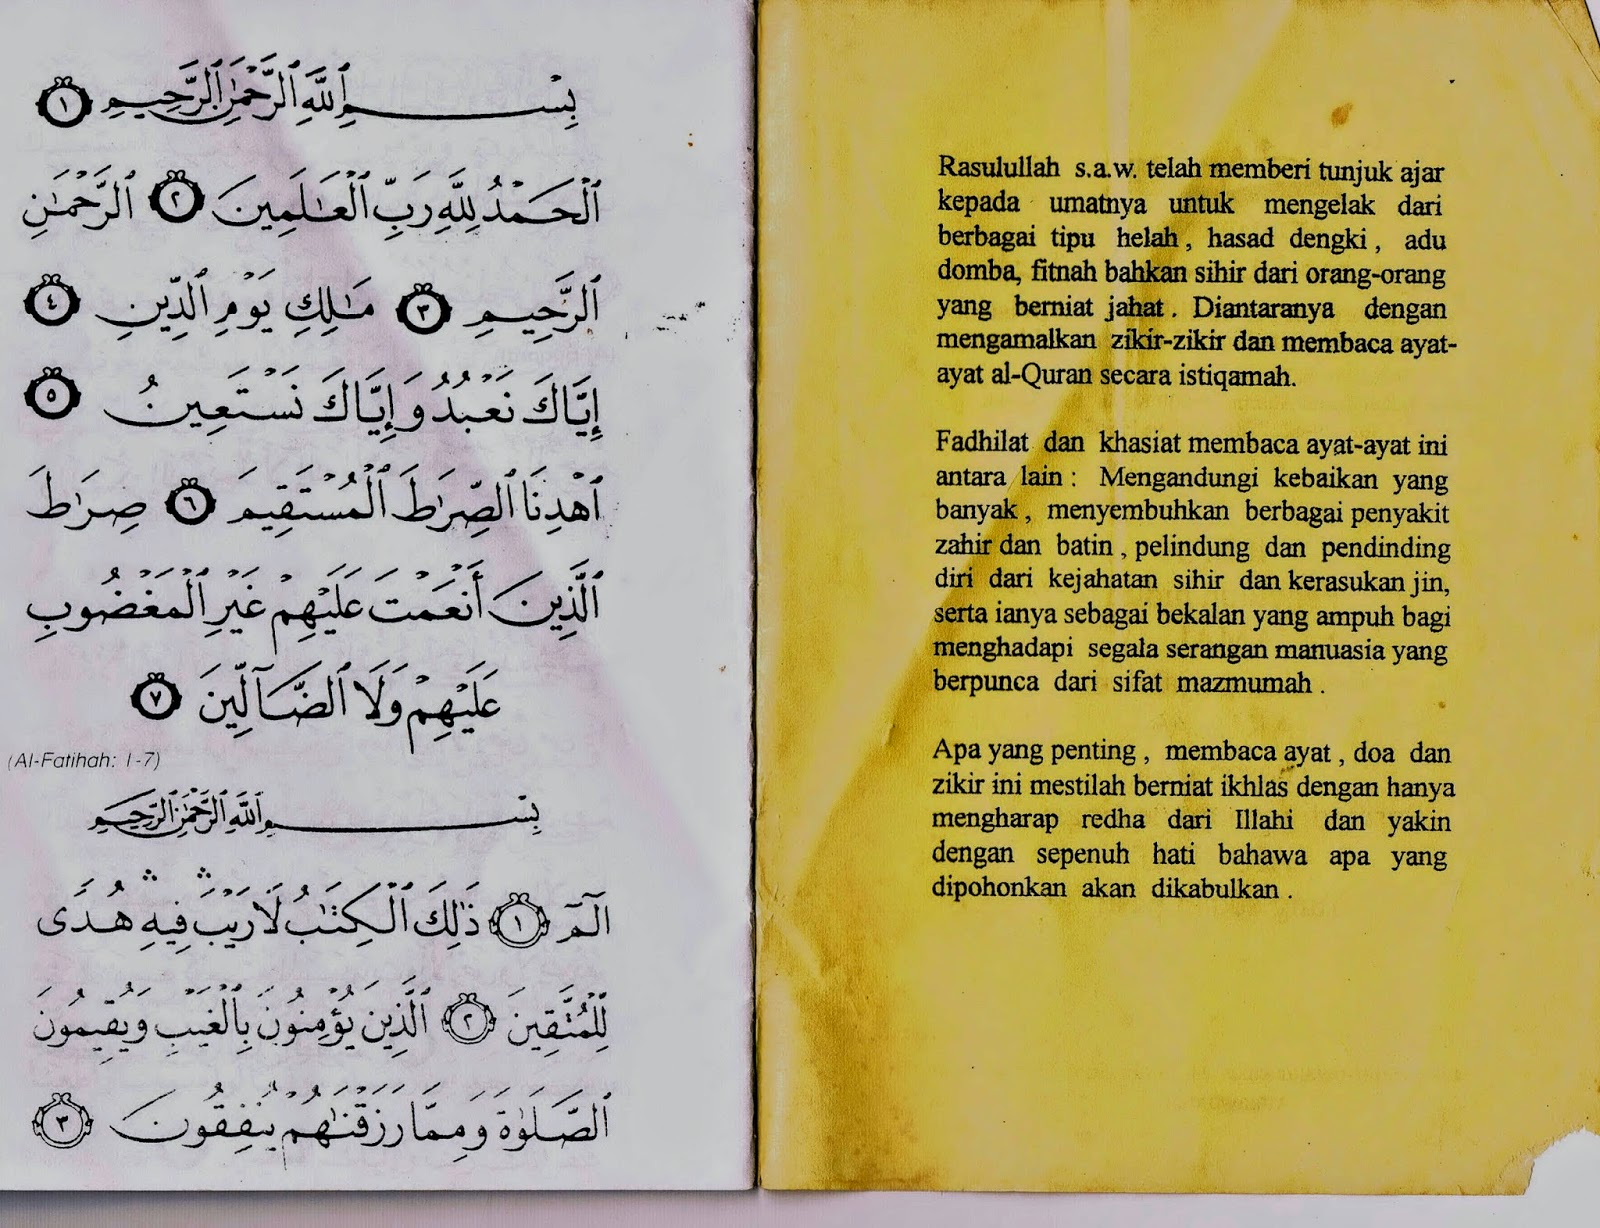 بِسْمِ ٱللَّهِ ٱلرَّحْمَٰنِ ٱلرَّحِيمِ ١
ٱلْحَمْدُ لِلَّهِ رَبِّ ٱلْعَٰلَمِينَ ٢ ٱلرَّحْمَٰنِ
ٱلرَّحِيمِ ٣ مَٰلِكِ يَوْمِ ٱلدِّينِ ٤
إِيَّاكَ نَعْبُدُ وَإِيَّاكَ نَسْتَعِينُ ٥
ٱهْدِنَا ٱلصِّرَٰطَ ٱلْمُسْتَقِيمَ ٦ صِرَٰطَ
ٱلَّذِينَ أَنْعَمْتَ عَلَيْهِمْ غَيْرِ ٱلْمَغْضُوبِ
عَلَيْهِمْ وَلَا ٱلضَّآلِّينَ ٧
(Al-Fatihah: 1-7)
بِسْمِ ٱللَّهِ ٱلرَّحْمَٰنِ ٱلرَّحِيمِ
الٓمٓ ١ ذَٰلِكَ ٱلْكِتَٰبُ لَا رَيْبَ ۛ فِيهِ ۛ هُدًى
لِّلْمُتَّقِينَ ٢ ٱلَّذِينَ يُؤْمِنُونَ بِٱلْغَيْبِ وَيُقِيمُونَ
ٱلصَّلَوٰةَ وَمِمَّا رَزَقْنَٰهُمْ يُنفِقُونَ ٣
Rasulullah s.a.w. telah memberi tunjuk ajar
kepada umatnya untuk mengelak dari
berbagai tipu helah, hasad dengki, adu
domba, fitnah bahkan sihir dari orang-orang
yang berniat jahat. Diantaranya dengan
mengamalkan zikir-zikir dan membaca ayat-
ayat al-Quran secara istiqamah.
Fadhilat dan khasiat membaca ayat-ayat ini
antara lain : Mengandungi kebaikan yang
banyak, menyembuhkan berbagai penyakit
zahir dan batin, pelindung dan pendinding
diri dari kejahatan sihir dan kerasukan jin,
serta ianya sebagai bekalan yang ampuh bagi
menghadapi segala serangan manuasia yang
berpunca dari sifat mazmumah.
Apa yang penting, membaca ayat, doa dan
zikir ini mestilah berniat ikhlas dengan hanya
mengharap redha dari Illahi dan yakin
dengan sepenuh hati bahawa apa yang
dipohonkan akan dikabulkan.